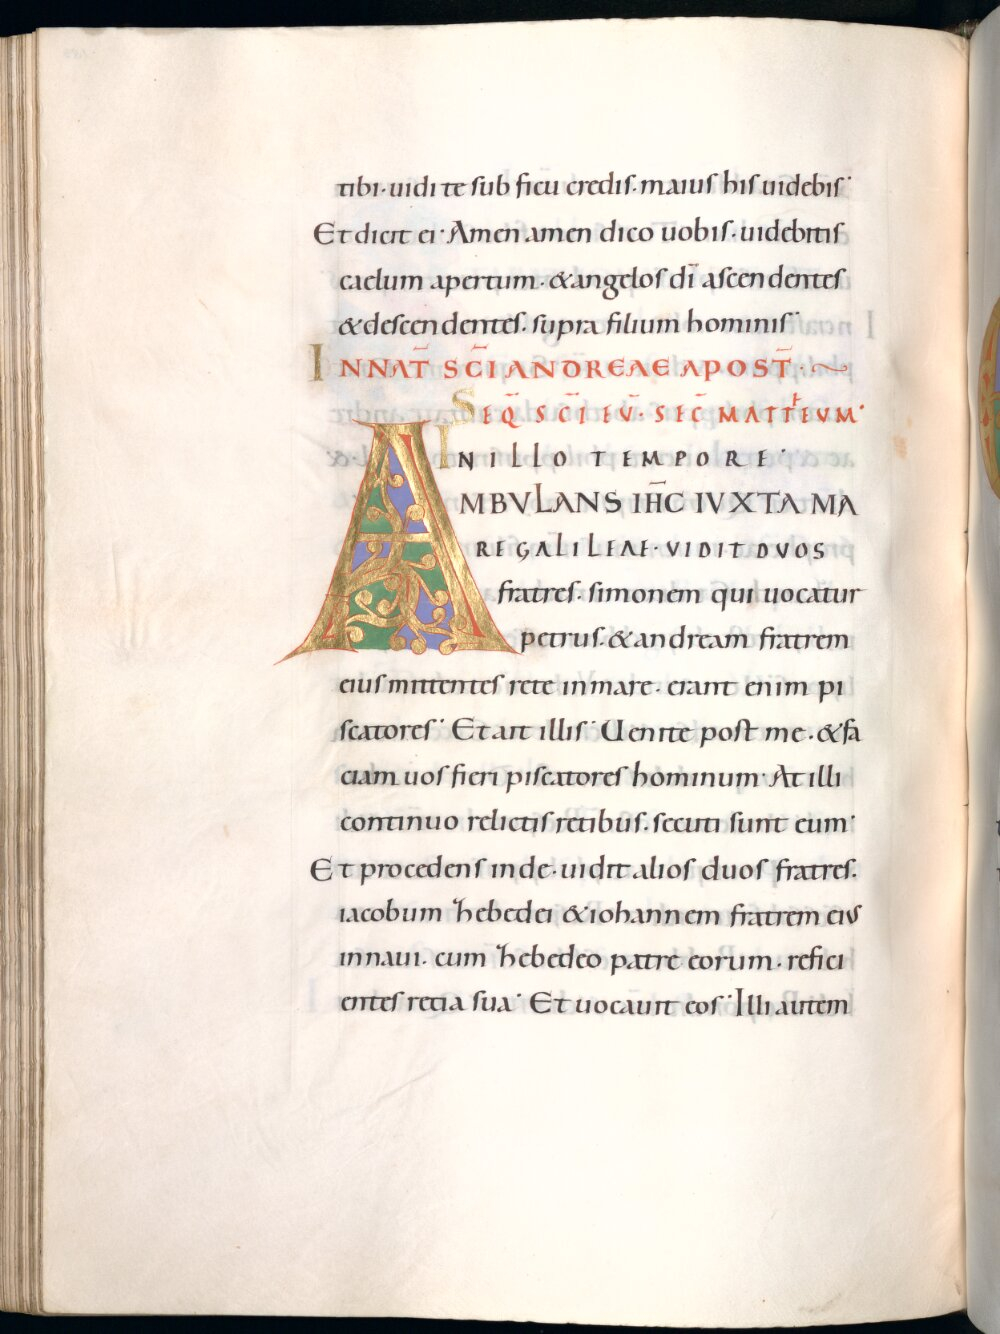 tibi · uidi te sub ficu credis · maius his uidebis ·
Et dicit ei · Amen amen dico uobis · uidebitis
caelum apertum · & angelos dī ascendentes
& descendentes · supra filium hominis ·
IN NAT̄ SC̄I ANDREAE APOST̄ ·
SEQ̄ SC̄I EV̄ · SEC̄ MATTEVM ·
IN ILLO TEMPORE ·
AMBVLANS IH̄C IVXTA MA
RE GALILEAE · VIDIT DVOS
fratres · simonem qui uocatur
petrus · & andream fratrem
eius mittentes rete in mare · erant enim pi
scatores · Et ait illis · Uenite post me · & fa
ciam uos fieri piscatores hominum · At illi
continuo relictis retibus · secuti sunt eum ·
Et procedens inde · uidit alios duos fratres ·
iacobum hebedei & iohannem fratrem eius
in naui · cum hebedeo patre eorum · refici
entes retia sua · Et uocauit eos · Illi autem